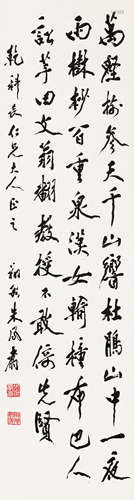 萬壑樹參天千山響杜鵑山中一夜
雨樹杪百重泉漢女輸橦布巴人
訟芋田文翁翻教授不敢倚先賢
乾祥長仁兄大人正之
弟朱